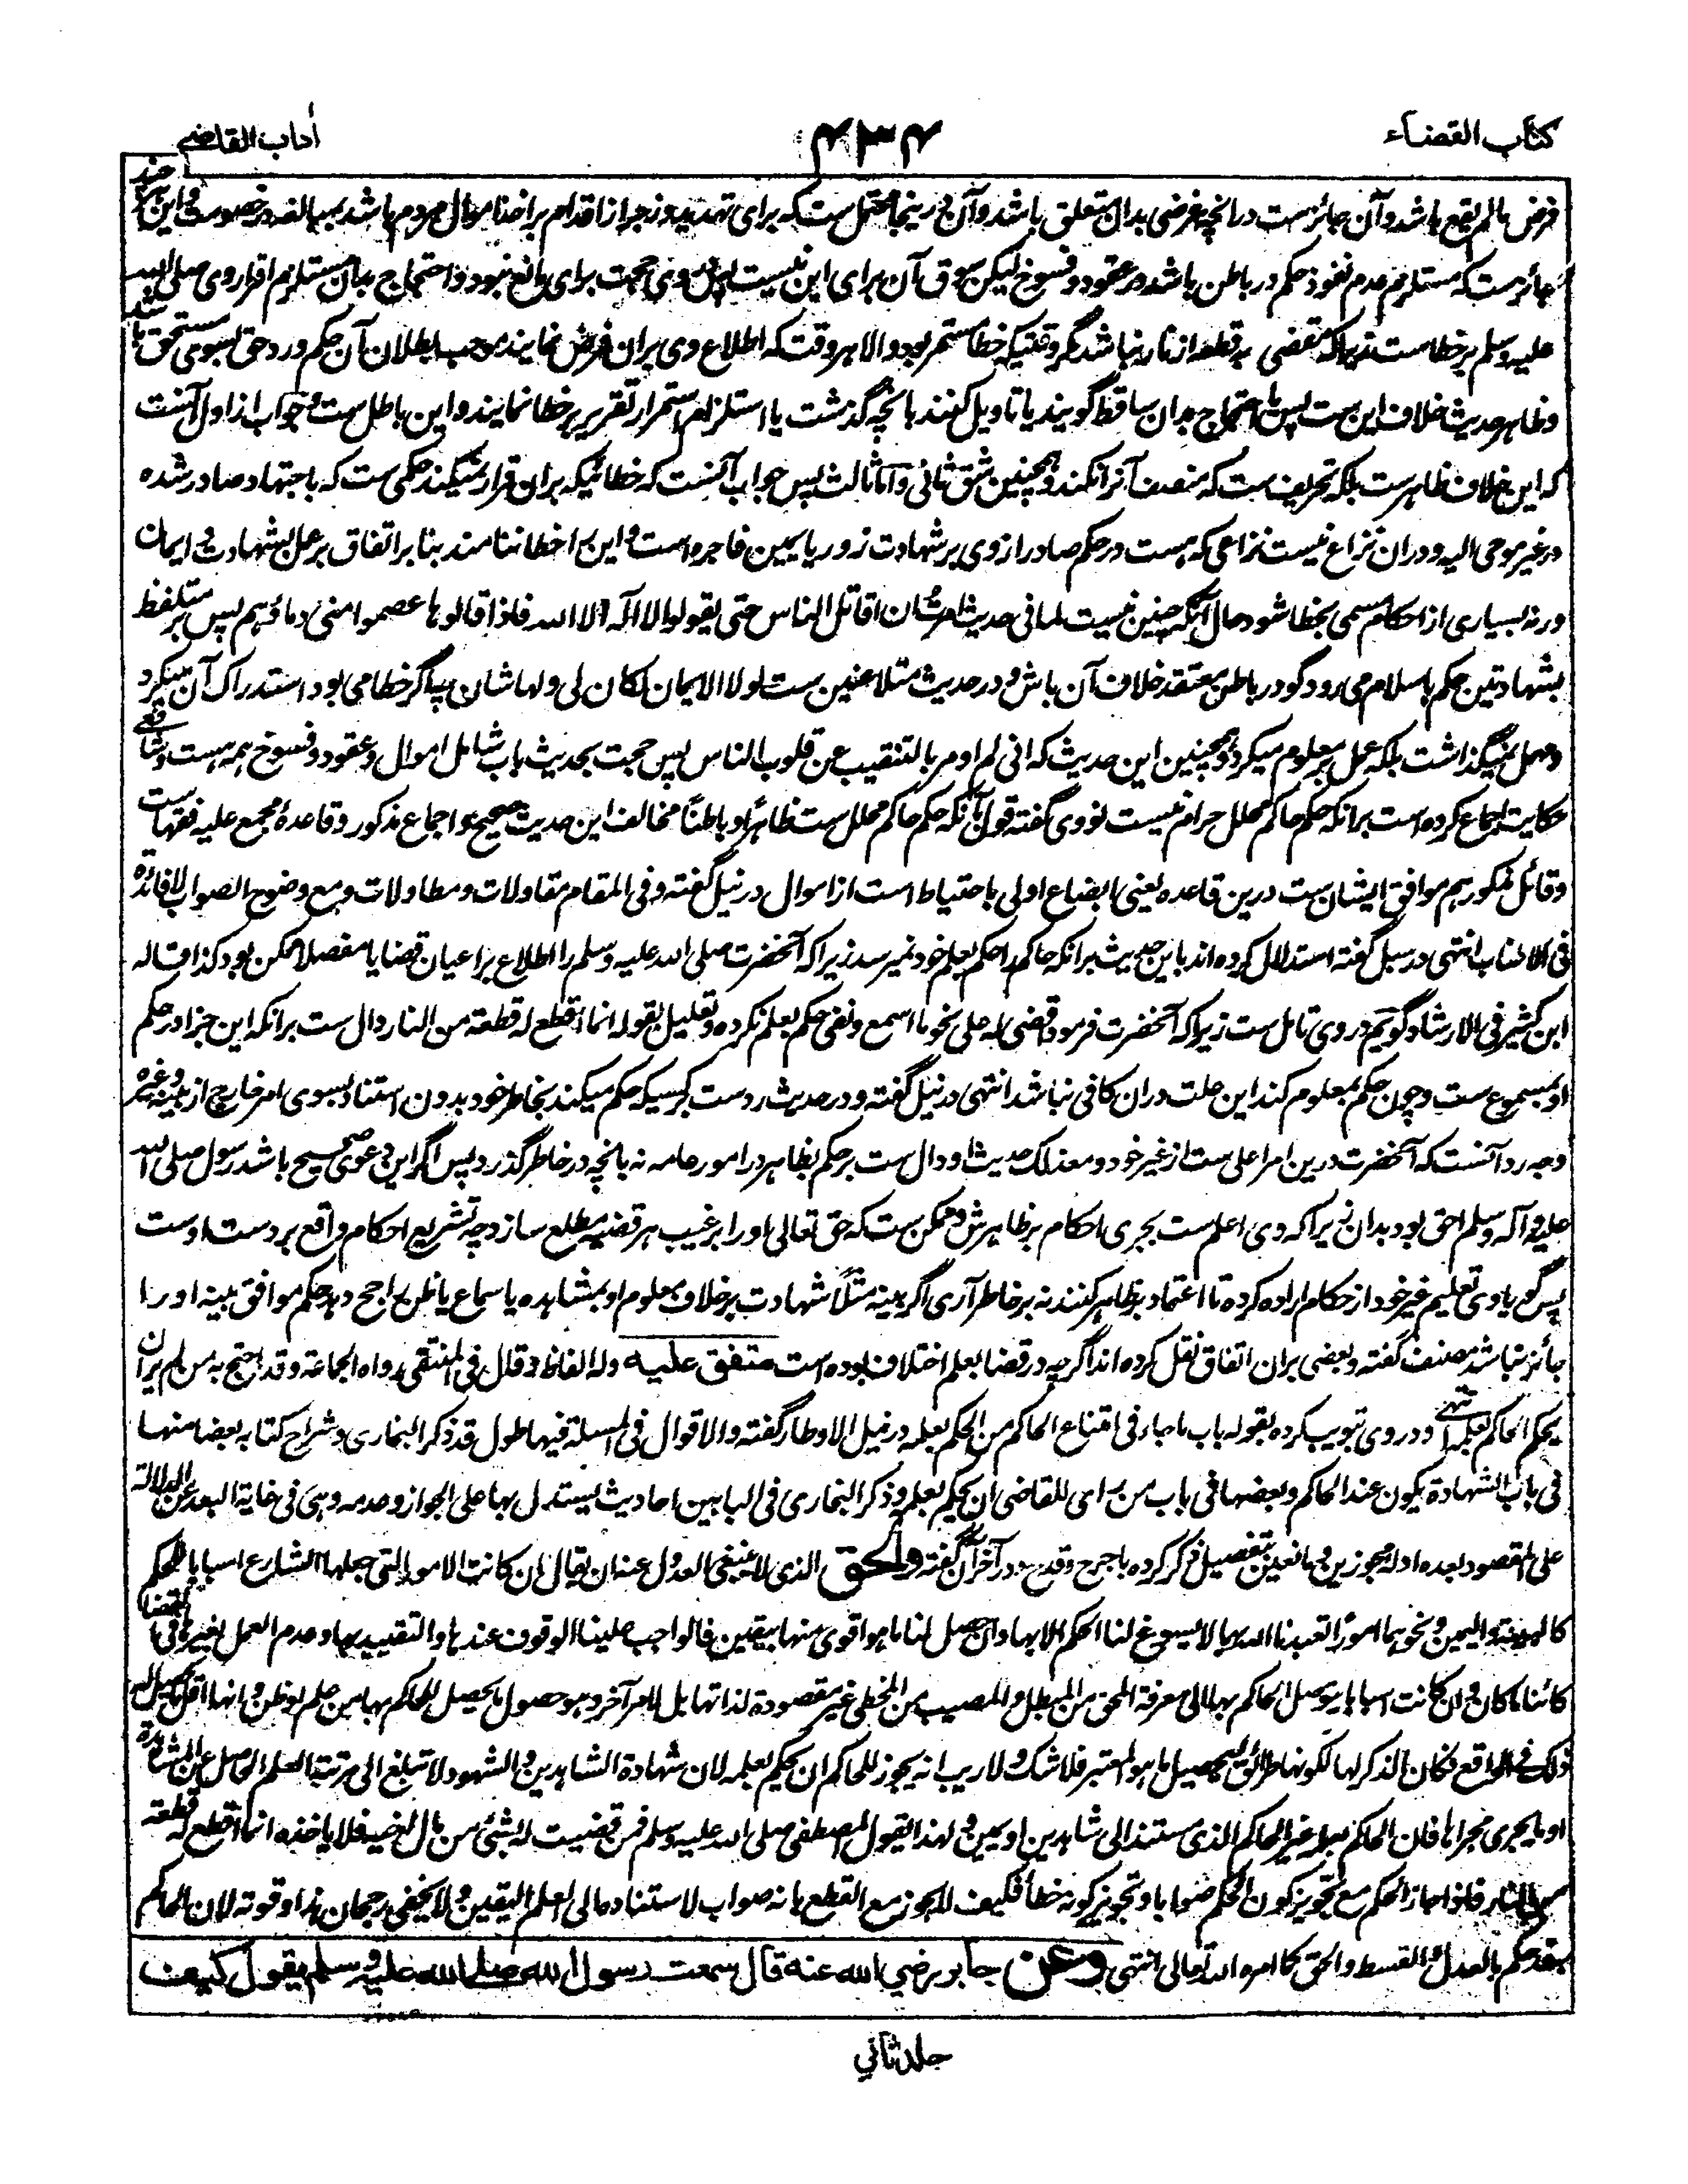 کتاب القضاء
۴۳۴
آداب القاضی
فرض مالم یقع باشد و آن جائزست در انچه غرضی بدان متعلق باشد و آن در ینجا محتمل ست که برای تهدید و زجر از اقدام بر اخذ اموال مردم باشد بمبالغه در خصومت و این هر چند
جائزست که مستلزم عدم نفوذ حکم در باطن باشد در عقود و فسوخ لیکن سوق آن برای این نیست پس دروی حجت برای مانع نبود و احتجاج بدان مستلزم اقرار وی صلی الله
علیه وسلم بر خطاست زیرا که مقضی به قطعه از نار نباشد مگر وقتیکه خطا مستمر بود و الا هر وقت که اطلاع وی بران فرض نمایند موجب ابطلان آن حکم و رد حق بسوی مستحق باشد
و ظاهر حدیث خلاف این ست پس یا احتجاج بدان ساقط گویند یا تاویل کنند بانچه گذشت یا استلزام استمرار تقریر بر خطا نمایند و این باطل ست و جواب از اول آنست
که این خلاف ظاهرست بلکه تحریف ست که منصف آنرا نکند و همچنین شق ثانی و اما ثالث پس جواب آنست که خطائیکه بران قرار نمیکند حکمی ست که باجتهاد صادر شده
در غیر موحی الیه و دران نزاع نیست نزاعی که هست در حکم صادر از وی بر شهادت زور یا یمین فاجره است و این را خطا ننامند بنا بر اتفاق بر عمل بشهادت و ایمان
ورنه بسیاری از احکام مسمی بخطا شود حال آنکه چنین نیست لما فی حدیث امرت ان اقاتل الناس حتی یقولوا لا اله الا الله فاذا قالوها عصموا منی دماءهم پس بر متلفظ
بشهادتین حکم باسلام می رود گو در باطن معتقد خلاف آن باشد و در حدیث متلاعنین ست لولا الایمان لکان لی ولها شان پس اگر خطا می بود استدراک آن میکرد
و مهمل نمیگذاشت بلکه عمل بر معلوم میکرد و همچنین این حدیث که انی لم اومر بالتنقیب عن قلوب الناس پس حجت بحدیث باب شامل اموال و عقود و فسوخ همه هست و شافعی
حکایت اجماع کرده است برانکه حکم حاکم محلل حرام نیست نووی گفته قول بآنکه حکم حاکم محلل ست ظاهراً و باطناً مخالف این حدیث صحیح و اجماع مذکور و قاعدهٔ مجمع علیه فقهاست
و قائل مذکور هم موافق ایشان ست درین قاعده یعنی ابضاع اولی باحتیاط است از اموال در نیل گفته و فی المقام مقاولات و مطاولات و مع وضوح الصواب لا فائدة
فی الاطناب انتهی در سبل گفته استدلال کرده اند باین حدیث برانکه حاکم را حکم بعلم خود نمیرسد زیرا که آنحضرت صلی الله علیه وسلم را اطلاع بر اعیان قضایا مفصلا ممکن بود کذا قاله
ابن کثیر فی الارشاد و گویم در وی تامل ست زیرا که آنحضرت فرمود فاقضی له علی نحو ما اسمع و نفی حکم بعلم نکرده و تعلیل بقوله انما اقطع له قطعة من النار دال ست برانکه این جزا در حکم
او بمسموع ست و چون حکم بمعلوم کند این علت دران کافی نباشد انتهی در نیل گفته و در حدیث ردست بر کسیکه حکم میکند بخاطر خود بدون استناد بسوی امر خارج از بینه و غیره
وجه رد آنست که آنحضرت درین امر اعلی ست از غیر خود و معذلک حدیث او دال ست بر حکم بظاهر در امور عامه نه بانچه در خاطر گذرد پس اگر این دعوی صحیح باشد رسول صلی الله
علیه و آله وسلم احق بود بدان زیرا که وی اعلم ست بجری احکام بر ظاهرش و ممکن ست که حق تعالی او را بر غیب هر قضیه مطلع سازد چه تشریع احکام واقع بر دست اوست
پس گویا وی تعلیم غیر خود از حکام اراده کرده تا اعتماد بر ظاهر کنند نه بر خاطر آری اگر بینه مثلاً شهادت بر خلاف معلوم او بمشاهده یا سماع یا ظن راجح دهد حکم موافق بینه او را
جائز نباشد مصنف گفته و بعضی بران اتفاق نقل کرده اند اگرچه در قضا بعلم اختلاف بوده است متفق علیه وله الفاظ قال فی المنتقی رواه الجماعة و قد احتج به من لم یر ان
یحکم الحاکم بعلمه انتهی و در وی تبویب کرده بقوله باب ما جاء فی امتناع الحاکم من الحکم بعلمه در نیل الاوطار گفته و الاقوال فی المسئلة فیها طول قد ذکر البخاری و شراح کتابه بعضا منها
فی باب الشهادة یکون عند الحاکم و بعضها فی باب من رای للقاضی ان یحکم بعلمه و ذکر البخاری فی البابین احادیث یستدل بها علی الجواز و عدمه و هی فی غایة البعد عن الدلالة
علی المقصود بعده ادله مجوزین و مانعین بتفصیل ذکر کرده با جرح و قدح و در آخر آن گفته والحق الذی لا ینبغی العدول عنه ان یقال ان کانت الامور التی جعلها الشارع اسبابا للحکم
کالبینة و الیمین و نحوهما امورًا تعبدنا الله بها لا یسوغ لنا الحکم الا بها و ان حصل لنا ما هو اقوی منها بیقین فالواجب علینا الوقوف عندها و التقیید بها و عدم العمل بغیرها فی القضاء
کائنا ما کان و ان کانت اسبابا یتوصل الحاکم بها الی معرفة المحق من المبطل و المصیب من المخطی غیر مقصودة لذاتها بل لامر آخر و هو حصول ما یحصل للحاکم بها من علم او ظن و انها اقل ما یحصل له
ذلک فی الواقع فکان الذکر لها لکونها طرائق لتحصیل ما هو المعتبر فلا شک و لا ریب انه یجوز للحاکم ان یحکم بعلمه لان شهادة الشاهدین و الشهود لا تبلغ الی مرتبة العلم الحاصل عن المشاهدة
او ما یجری مجراها فان الحاکم بعلمه غیر الحاکم الذی مستند الی شاهدین او یمین و لهذا یقول المصطفی صلی الله علیه وسلم فمن قضیت له بشئ من مال اخیه فلا یاخذه انما اقطع له قطعة
من النار فاذا جاز الحکم مع تجویز کون الحکم صوابا و تجویز کونه خطأ فکیف لا یجوز مع القطع بانه صواب لاستناده الی العلم الیقین و لا یخفی رجحان هذا و قوته لان الحاکم
به قد حکم بالعدل و القسط و الحق کما امر الله تعالی انتهی وعن جابر رضی الله عنه قال سمعت رسول الله صلی الله علیه وسلم یقول کیف
جلد ثانی